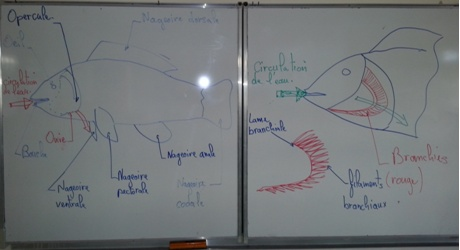 Opercule
Nageoire dorsale
Circulation
de l'eau
Ouïe
Nageoire
ventrale
Nageoire
pectorale
Nageoire anale
Nageoire
caudale
Circulation
de l'eau
Lame
branchiale
Branchies
(rouge)
filaments
branchiaux